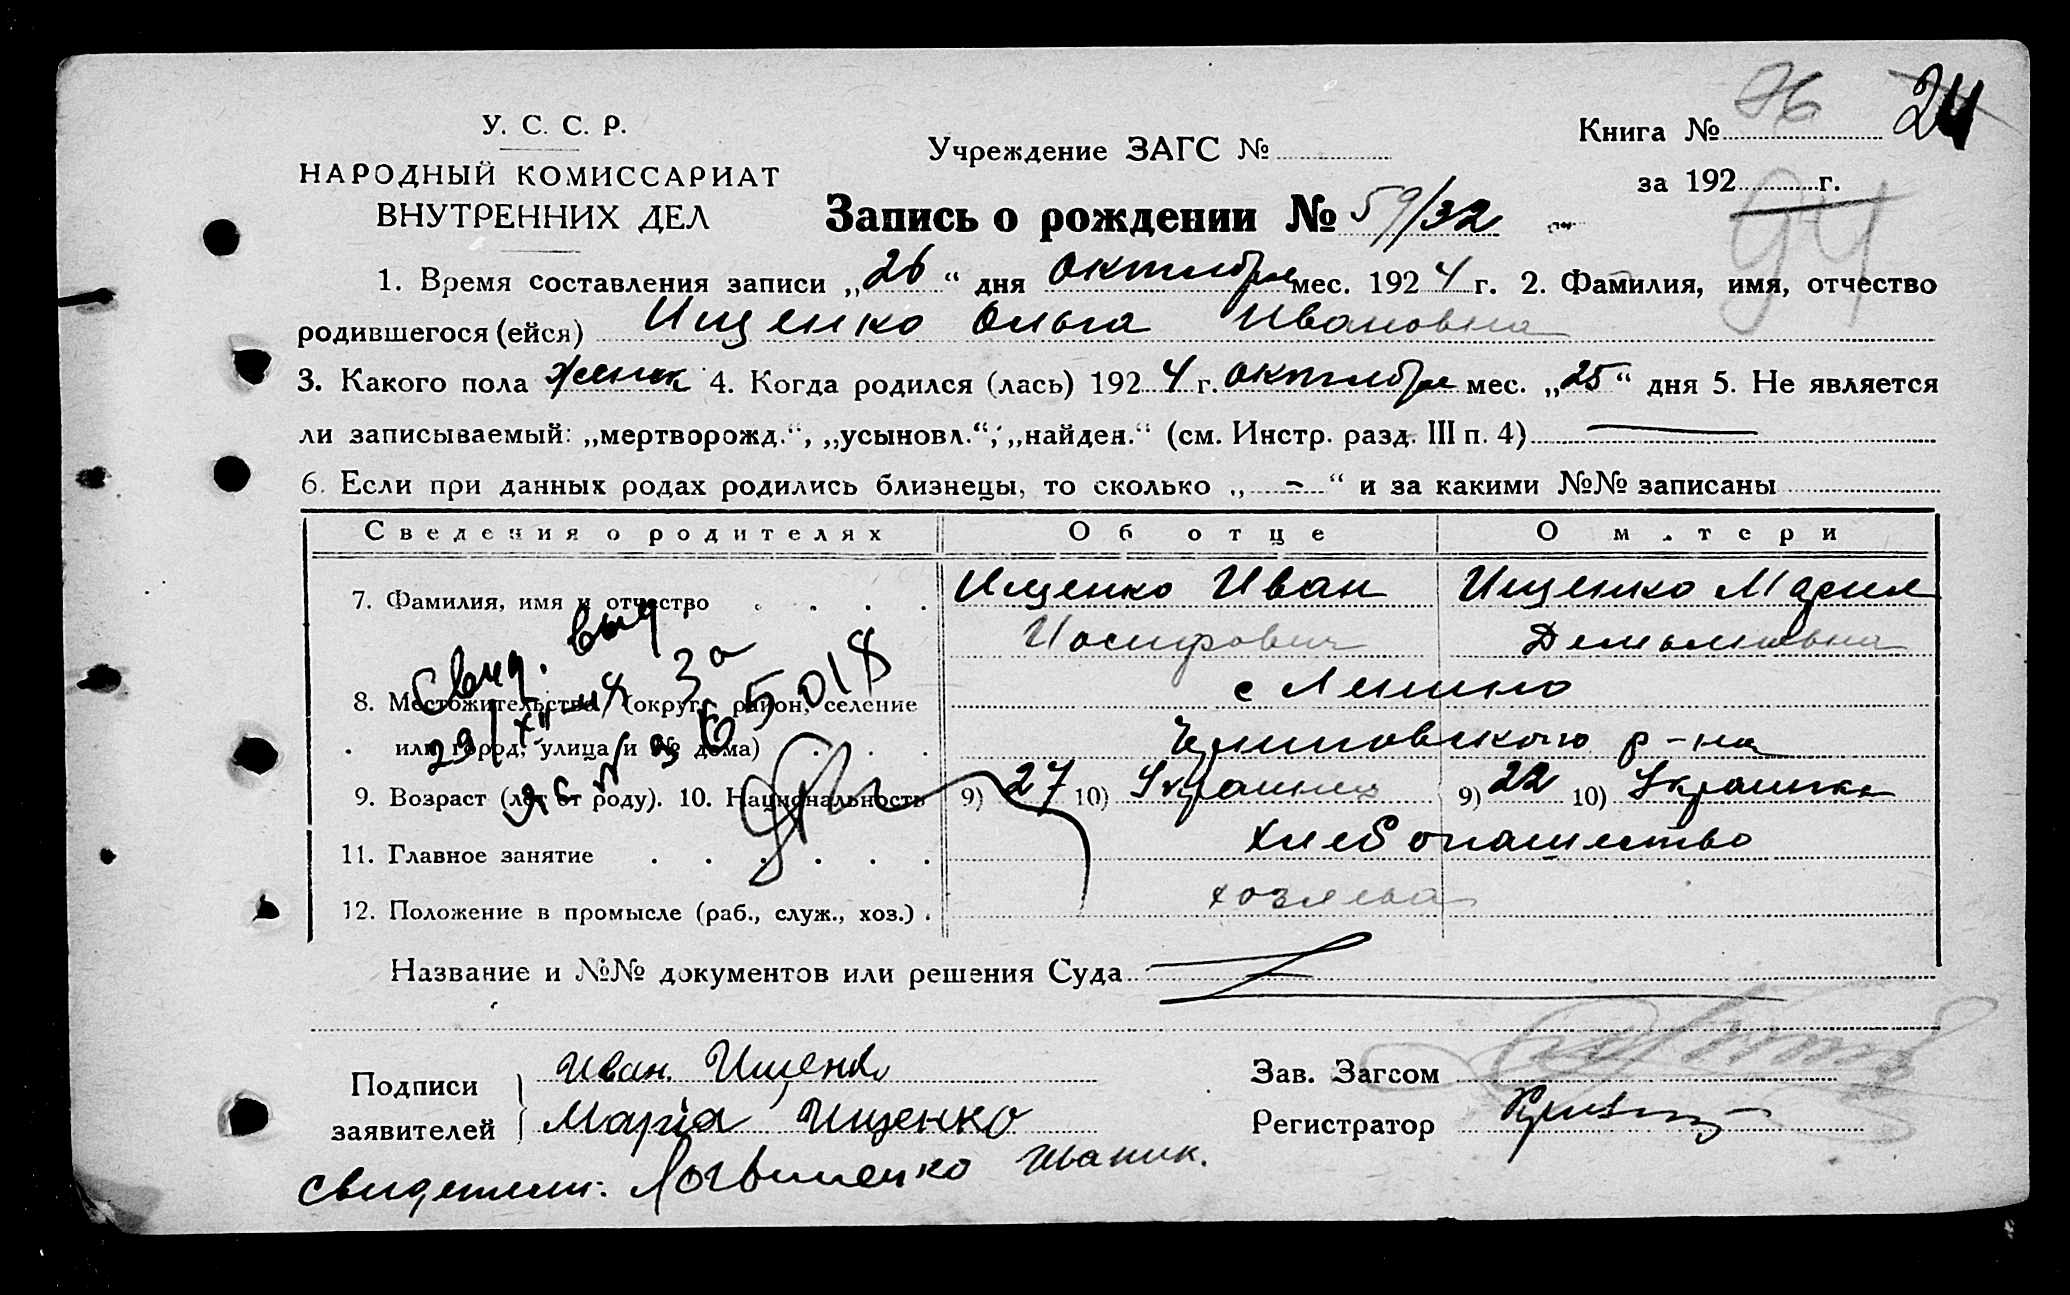 У. С. С. Р.
НАРОДНЫЙ КОМИССАРИАТ
ВНУТРЕННИХ ДЕЛ
Учреждение ЗАГС №
Книга № 24
за 192 г.
94
Запись о рождении № 59/32
1. Время составления записи „26“ дня октября мес. 1924 г. 2. Фамилия, имя, отчество
родившегося (ейся) Ищенко Ольга Ивановна
3. Какого пола женск 4. Когда родился (лась) 1924 г. октября мес. „25“ дня 5. Не является
ли записываемый: „мертворожд.“, „усыновл.“, „найден.“ (см. Инстр. разд. III п. 4)
6. Если при данных родах родились близнецы, то сколько „-“ и за какими №№ записаны
Сведения о родителях Об отце О м.тери
7. Фамилия, имя и отчество Ищенко Иван Ищенко Мария
Иосифович Демьяновна
Свид. выд.
8. Местожительство (округ, район, селение с
или город, улица и № дома) р-на
29/XII 3а
65018
9. Возраст (лет от роду). 10. Национальность 9) 27 10) Украинец 9) 22 10) Украинка
11. Главное занятие хлебопашество
12. Положение в промысле (раб., служ., хоз.) хозяева
Название и №№ документов или решения Суда
Подписи Иван Ищенко Зав. Загсом
заявителей Марія Ищенко Регистратор
Свидетели: Логвиненко